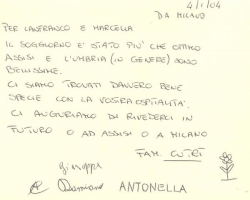 4/1/04
PER LANFRANCO E MARCELLA
DA MILANO
IL SOGGIORNO E' STATO PIU' CHE OTTIMO
ASSISI E L'UMBRIA (IN GENERE) SONO
BELLISSIME.
CI SIAMO TROVATI DAVVERO BENE
SPECIE CON LA VOSTRA OSPITALITA'.
CI AUGURIAMO DI RIVEDERCI IN
FUTURO O AD ASSISI O A MILANO
FAM. CUTRÌ
Giuseppe
Damiano ANTONELLA